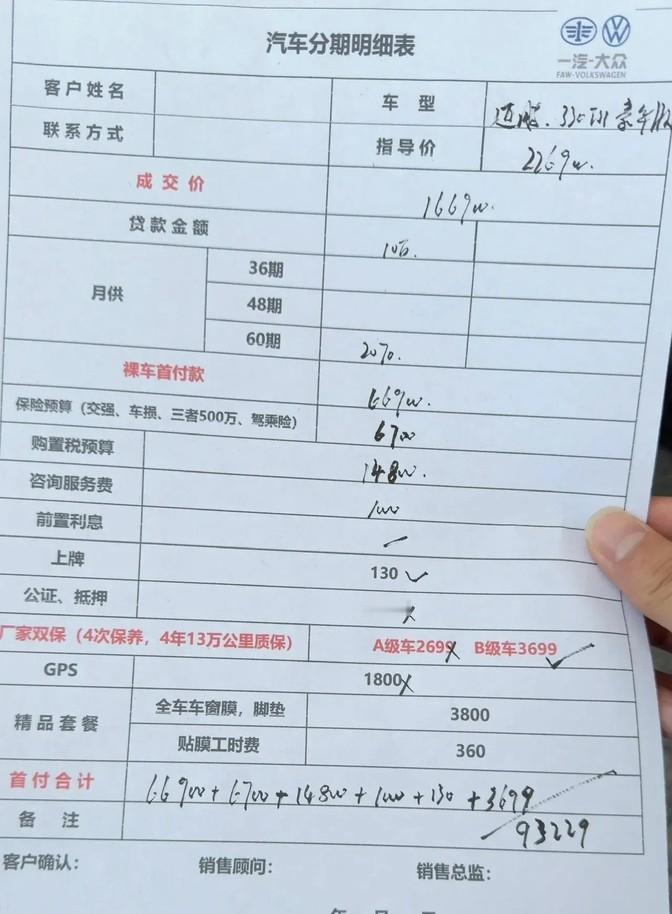 一汽-大众
FAW-VOLKSWAGEN
汽车分期明细表
客户姓名 车型 迈腾.330TSI豪华版
联系方式 指导价 226900.
成交价 166900.
贷款金额 10万.
月供 36期
48期
60期 2070.
裸车首付款 66900.
保险预算（交强、车损、三者500万、驾乘险） 6700
购置税预算 14800.
咨询服务费 1000
前置利息
上牌 130
公证、抵押
厂家双保（4次保养，4年13万公里质保） A级车2699 B级车3699
GPS 1800
精品套餐 全车车窗膜，脚垫 3800
贴膜工时费 360
首付合计 66900+6700+14800+1000+130+3699
备注 93229
客户确认： 销售顾问： 销售总监：